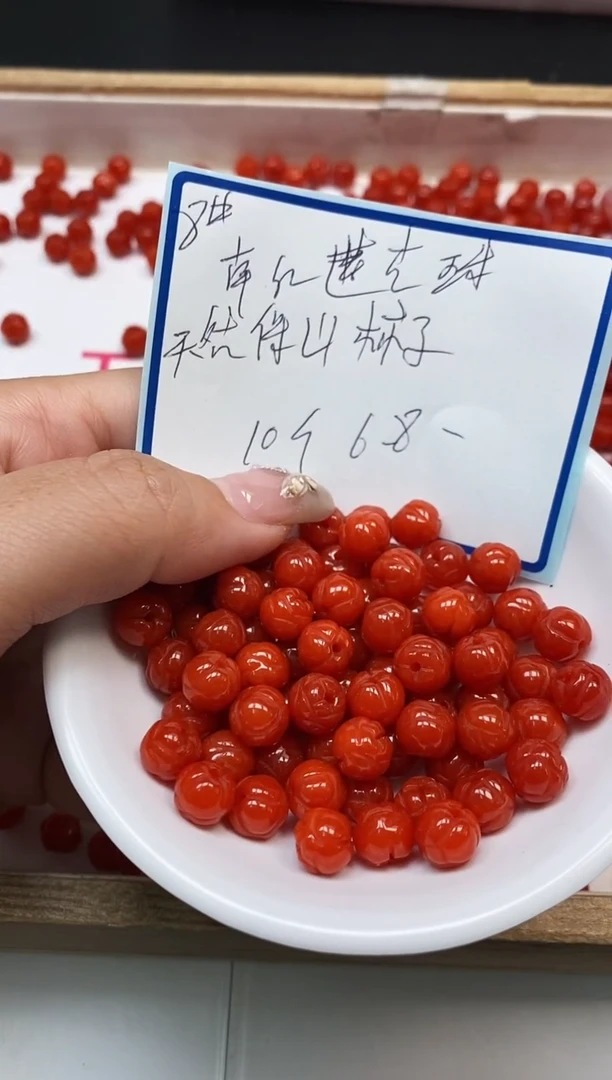 8#
南红莲花珠
天然保山柿子
10个 68-